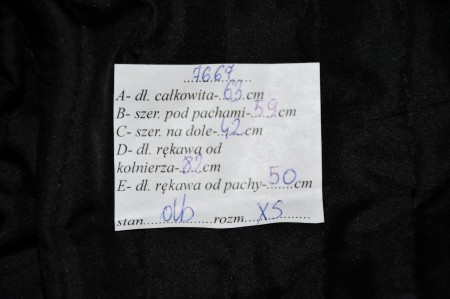 7667
A- dł. całkowita- 63 cm
B- szer. pod pachami- 59 cm
C- szer. na dole- 42 cm
D- dł. rękawa od
kołnierza- 82 cm
E- dł. rękawa od pachy- 50 cm
stan db rozm. XS